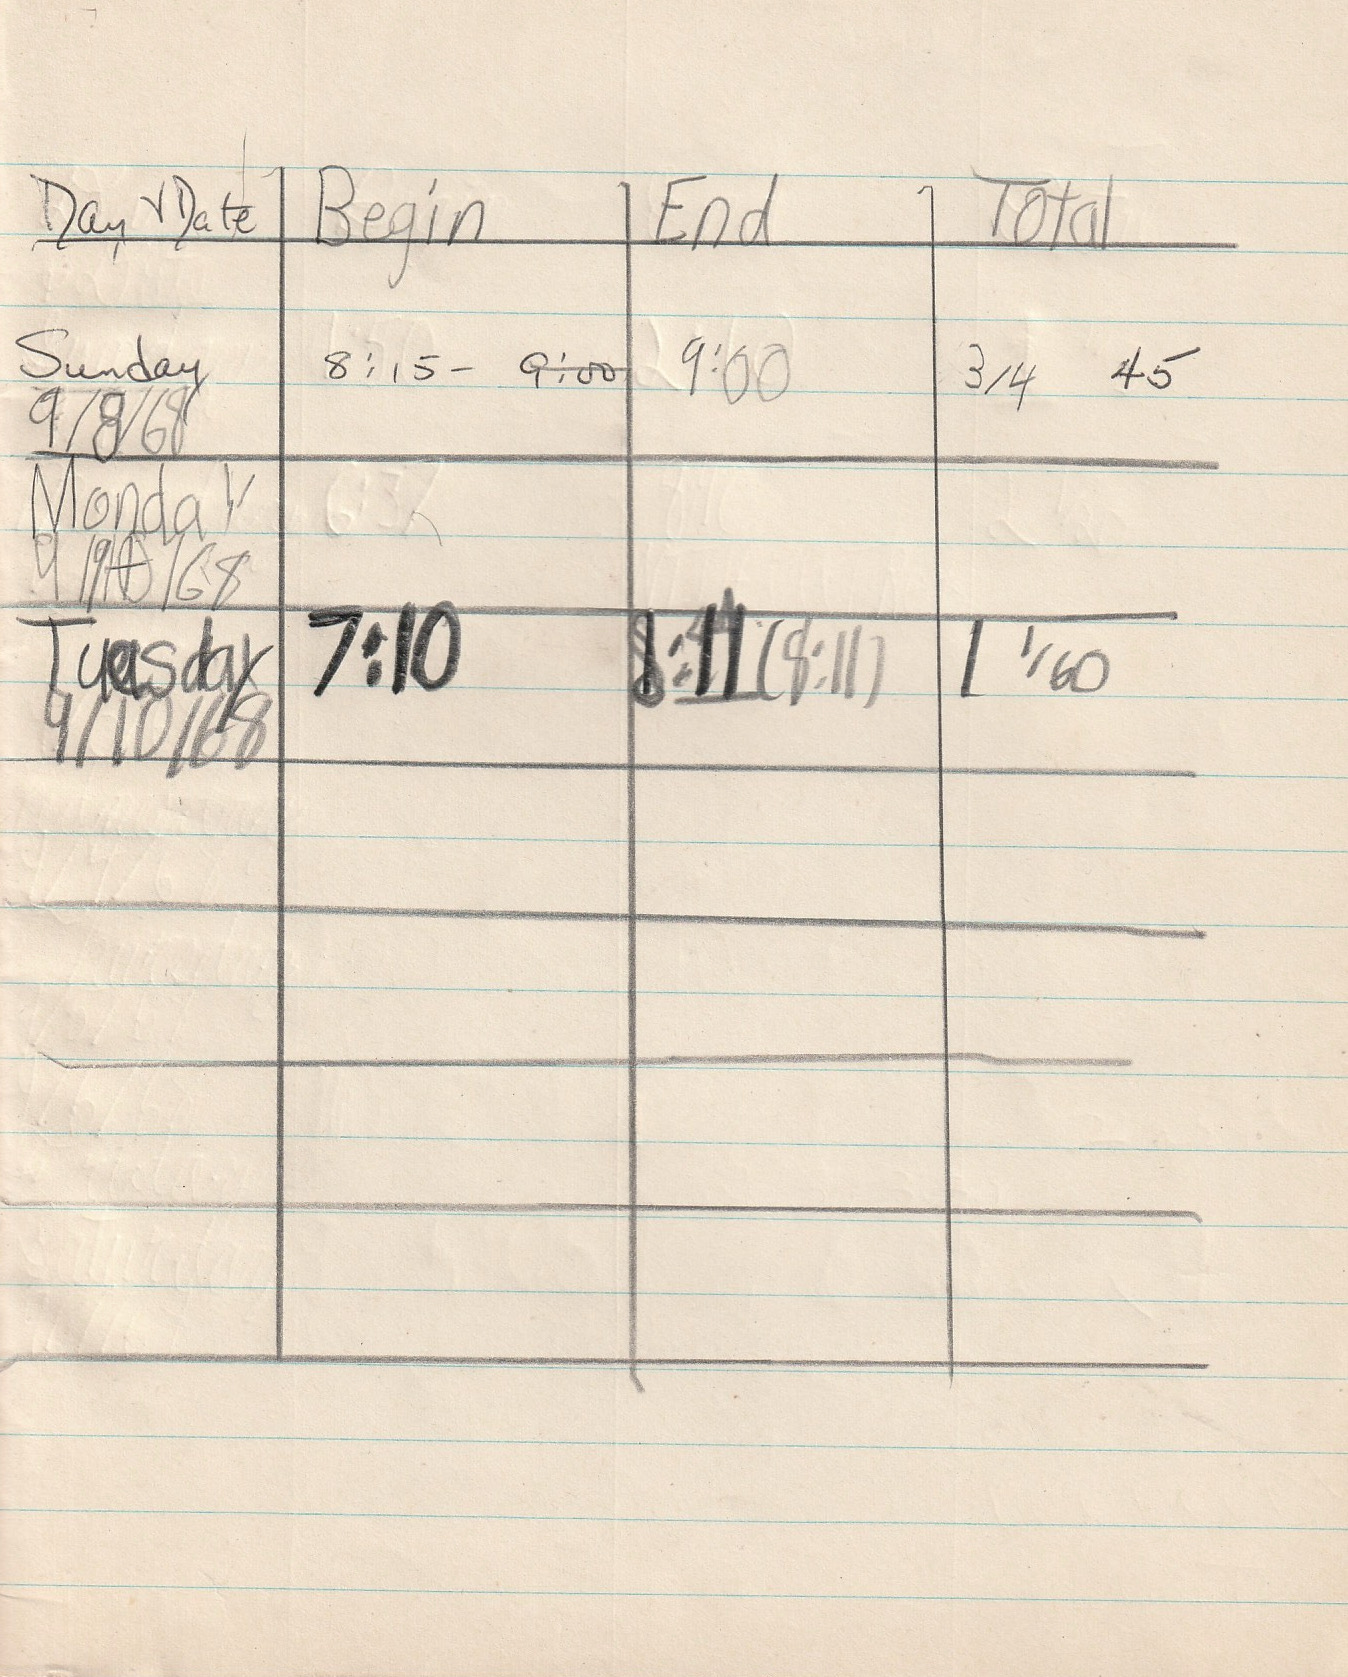 Day & Date Begin End Total
Sunday 8:15- 9:00 9:00 3/4 45
9/8/68
Monday
9/9/68
Tuesday 7:10 8:11 (8:11) 1 1/60
9/10/68